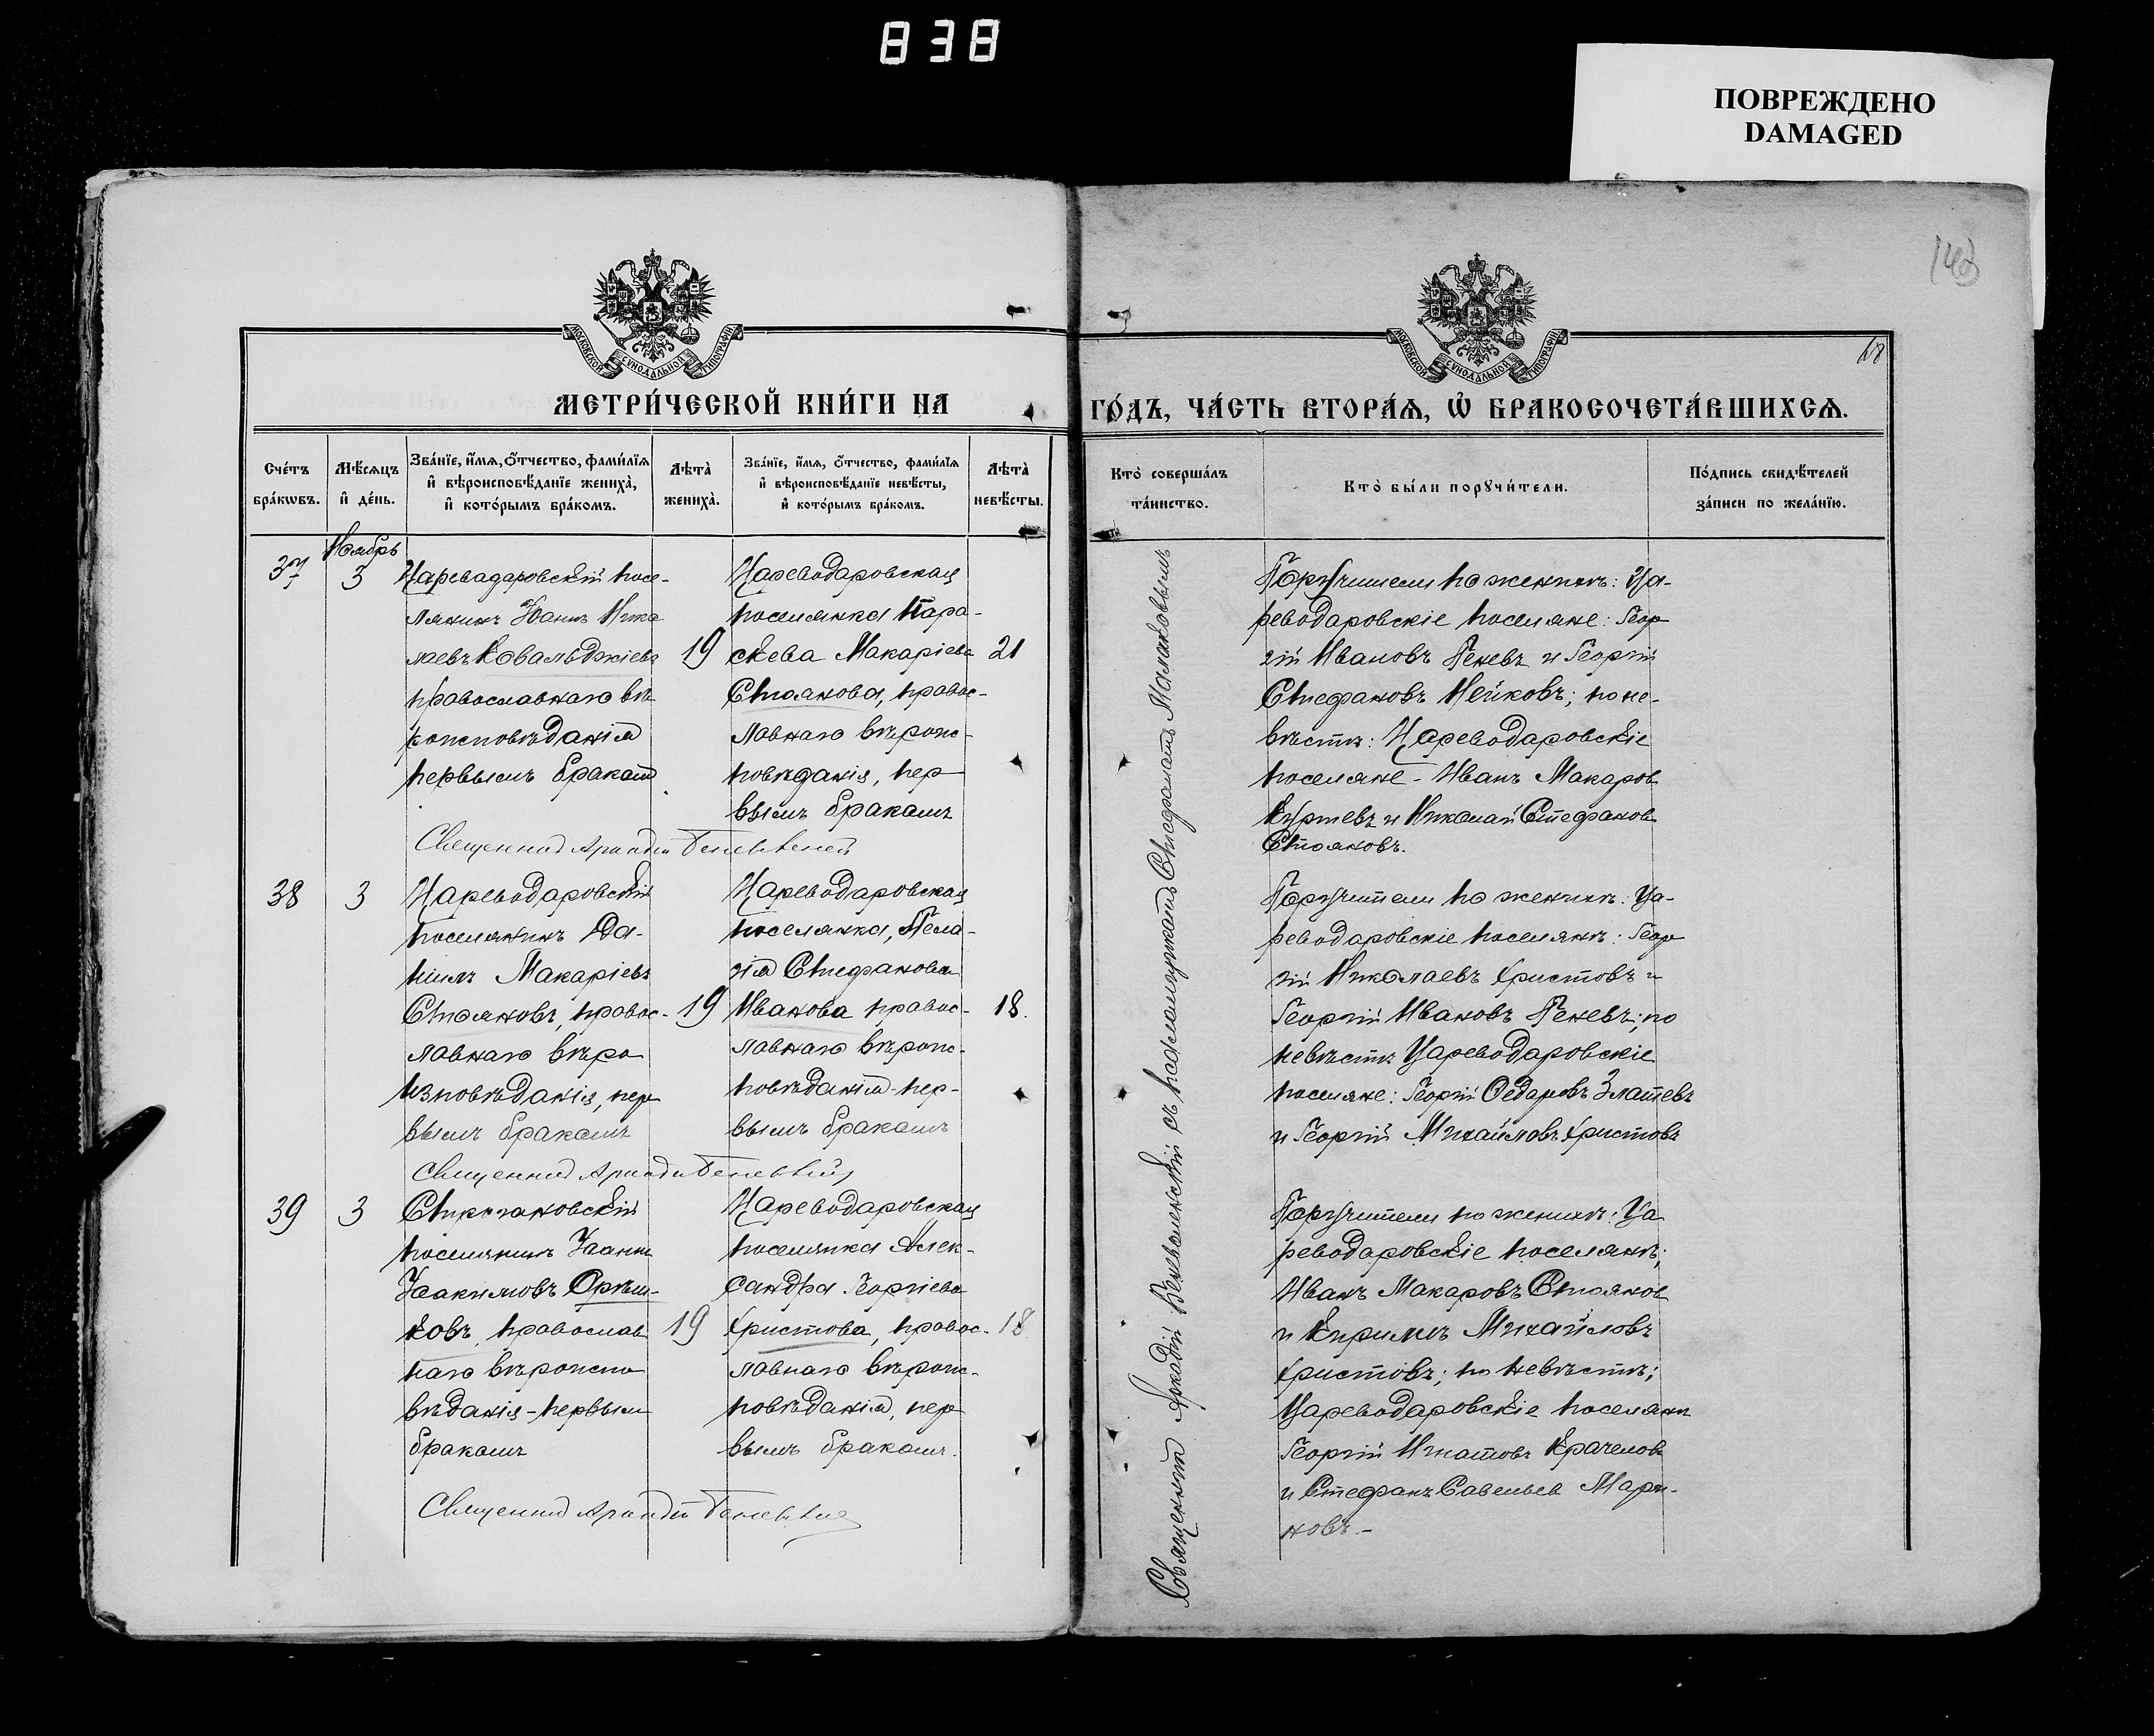 838
ПОВРЕЖДЕНО
DAMAGED
18
МОСКОВСКОЙ СѴНОДАЛЬНОЙ ТИПОГРАФІИ
МОСКОВСКОЙ СѴНОДАЛЬНОЙ ТИПОГРАФІИ
МЕТРИ́ЧЕСКОЙ КНИ́ГИ НА
ГО́ДЪ, ЧА́СТЬ ВТОРА́Ѧ, Ѡ҆ БРАКОСОЧЕТА́ВШИХСѦ.
Сче́тъ бра́кѡвъ.
Мѣ́сѧцъ и҆ де́нь.
Зва́нїе, и҆́мѧ, ѻ҆́тчество, фами́лїѧ и҆ вѣроисповѣ́данїе жениха̀, и҆ кото́рымъ бра́комъ.
Лѣта̀ жениха̀.
Зва́нїе, и҆́мѧ, ѻ҆́тчество, фами́лїѧ и҆ вѣроисповѣ́данїе невѣ́сты, и҆ кото́рымъ бра́комъ.
Лѣта̀ невѣ́сты.
Кто̀ соверша́лъ та́инство.
Кто̀ бы́ли порꙋчи́тели.
По́дпись свидѣ́телей за́писи по жела́нїю.
Ноябрь
37
3
Царевадаровскій посе-
лянинъ Іоаннъ Нико
лаевъ Ковальджіевъ
православнаго вѣ
роисповѣданія
первымъ бракомъ
19
Цареводаровская
поселянка Пара-
скева Макаріева
Стоянова, правос-
лавнаго вѣроис-
повѣданія, пер
вымъ бракомъ
21
Священникъ Аркадій
Поручители по женихѣ: Ца-
реводаровскіе поселяне: Геор
гій Ивановъ Геневъ и Георгій
Стефановъ Нейковъ; по не-
вѣстѣ: Цареводаровскіе
поселяне - Иванъ Макаров
Куртевъ и Николай Стефанов
Стояновъ.
38
3
Цареводаровскій
поселянинъ Да-
ніилъ Макаріевъ
Стояновъ, правос-
лавнаго вѣро
изповѣданія, пер
вымъ бракомъ
19
Цареводаровская
поселянка, Пела-
гія Стефанова
Иванова правос-
лавнаго вѣроис-
повѣданія - пер-
вымъ бракомъ
18.
Священникъ Аркадій
Поручители по женихѣ: Ца-
реводаровскіе поселянѣ: Геор
гій Николаевъ Христовъ и
Георгій Ивановъ Геневъ; по
невѣстѣ Цареводаровскіе
поселяне: Георгій Федоровъ Златевъ
и Георгій Михайловъ Христовъ
39
3
поселянинъ Іоаннъ
Іоакимовъ Орѣш-
ковъ, православ
наго вѣроиспо
вѣданія - первым
бракомъ
19
Цареводаровская
поселянка Алек-
сандра Георгіева
Христова, правос-
лавнаго вѣроис-
повѣданія, пер
вымъ бракомъ.
18
Священникъ Аркадій
Поручители по женихѣ: Ца
реводаровскіе поселянѣ;
Иванъ Макаровъ Стоянов
и Кириллъ Михайловъ
Христовъ; по невѣстѣ;
Цареводаровскіе поселянѣ
Георгій Игнатовъ Крачелов
и Стефанъ Савельев Мари-
новъ.-
Священникъ Аркадій съ псаломщикомъ Стефаномъ Малаковымъ